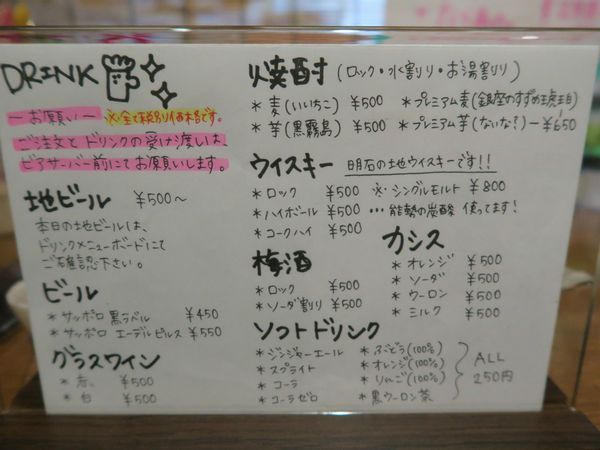 DRINK
ーお願いー ※全て税別価格です。
ご注文とドリンクの受け渡しは、
ビアサーバー前にてお願いします。
地ビール ¥500〜
本日の地ビールは、
ドリンクメニューボードにて
ご確認下さい。
ビール
*サッポロ 黒ラベル ¥450
*サッポロ エーデルピルス ¥550
グラスワイン
*赤 ¥500
*白 ¥500
焼酎 (ロック・水割り・お湯割り)
*麦(いいちこ) ¥500 *プレミアム麦(銀座のすずめ琥珀)
*芋(黒霧島) ¥500 *プレミアム芋(ないな!)ー¥650
ウィスキー 明石の地ウイスキーです!!
*ロック ¥500 ※シングルモルト ¥800
*ハイボール ¥500 …能勢の炭酸 使ってます!
*コークハイ ¥500
カシス
*オレンジ ¥500
*ソーダ ¥500
*ウーロン ¥500
*ミルク ¥500
梅酒
*ロック ¥500
*ソーダ割り ¥500
ソフトドリンク
*ジンジャーエール *ぶどう(100%)
*スプライト *オレンジ(100%)
*コーラ *りんご(100%)
*コーラゼロ *黒ウーロン茶
ALL
250円